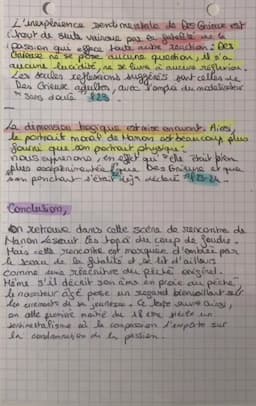 L'inexpérience sentimentale de Des Grieux est
tout de suite vaincue par la fatalité de la
passion qui efface toute autre réaction : Des
Grieux ne se pose aucune question, il n'a
aucune lucidité, ne se livre à aucune réflexion.
Les seules réflexions suggérées sont celles de
Des Grieux adulte, avec l'emploi du modalisateur
"sans doute"
La dimension tragique est mise en avant. Ainsi,
le portrait moral de Manon est beaucoup plus
fourni que son portrait physique :
nous apprenons, en effet qu'"elle était bien
plus expérimentée que" Des Grieux et que
son penchant s'était déjà déclaré
Conclusion,
On retrouve dans cette scène de rencontre de
Manon Lescaut les topoï du coup de foudre.
Mais cette rencontre est marquée d'emblée par
le sceau de la fatalité et se lit d'ailleurs
comme une réécriture du péché originel.
Même s'il décrit son âme en proie au péché
le narrateur âgé pose un regard bienveillant sur
les errements de sa jeunesse. Ce texte ouvre ainsi,
en cette première moitié du 18 ème siècle un
sentimentalisme où la compassion l'emporte sur
la condamnation de la passion.